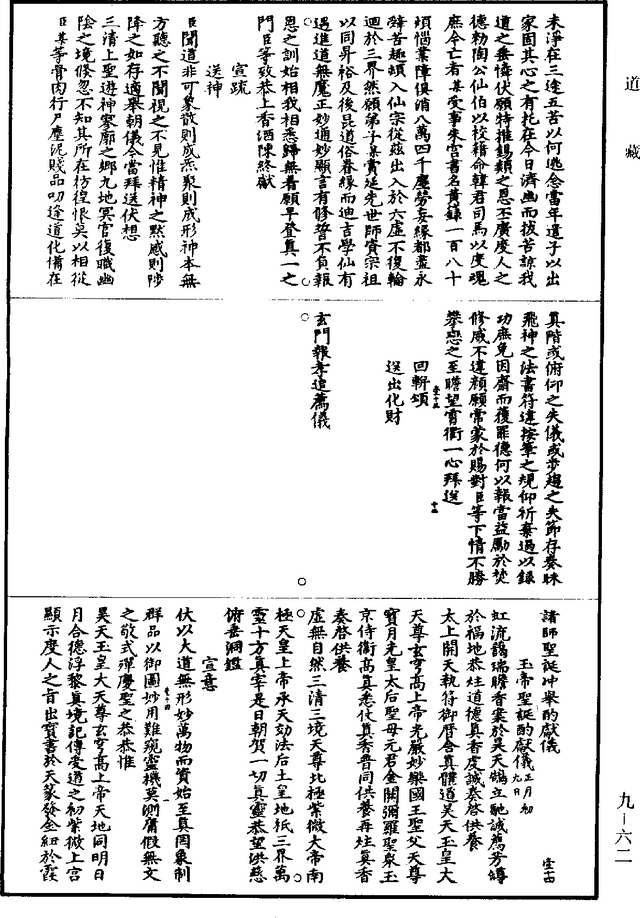 道藏
未淨在三途五苦以何逃念當年遺子以出
家固其心之有托在今日濟幽而拔苦諒我
道之垂憐伏願特推錫類之恩丕廣度人之
德勑陶公仙伯以校籍命韓君司馬以度魂
庶令亡者某受事朱宮書名黄録一百八十
煩惱業障俱消八萬四千塵勞妄緣都盡永
辭苦趣頓入仙宗從兹出入於六虛不復輪
迴於三界然願弟子某貫延先世師資宗祖
以同昇裕及後昆道俗眷緣而迪吉學仙有
遇進道無魔正妙通妙顯言有修誓不負報
恩之訓始相我相悉歸無着願早登真一之
門臣等致恭上香酒陳終獻
宣疏
送神
臣聞道非可象散則成炁聚則成形神本無
方聽之不聞視之不見惟精神之黙感則陟
降之如存適舉朝儀今當拜送伏想
三清上聖遊神寥廓之鄉九地冥官復職幽
陰之境倐忽不知其所在彷徨悵莫以相從
臣某等骨肉行尸塵泥賤品叨逢道化備在
真階或俯仰之失儀或步趨之失節存奏昧
飛神之法書符違按筆之規仰祈棄過以録
功庶免因齋而復罪德何以報當益勵於焚
修威不違顔願常蒙於賜對臣等下情不勝
攀戀之至瞻望霄衢一心拜送
回軿頌
送出化財
玄門報孝追薦儀
諸師聖誕冲舉酌獻儀
玉帝聖誕酌獻儀正月初九日
虹流謁瑞瞻香案於昊天鵠立馳誠薦芳罇
於福地恭炷道德真香虔誠奏啓供養
太上開天執符御曆含真體道昊天玉皇大
天尊玄穹高上帝光嚴妙樂國王聖父天尊
寶月光皇太后聖母元君金闕彌羅聖衆玉
京侍衞高真悉仗真香普同供養再炷真香
奏啓供養
虛無自然三清三境天尊北極紫微大帝南
極天皇上帝承天効法后土皇地祇三界萬
靈十方真宰是日朝賀一切真靈恭望洪慈
俯垂洞鑑
宣意
伏以大道無形妙萬物而資始至真罔象制
群品以御圖妙用難窺靈機莫測庸假無文
之敬式殫慶聖之恭恭惟
昊天玉皇大天尊玄穹高上帝天地同明日
月合德浮黎真境記傳受道之初紫微上宮
顯示度人之旨出寳書於天篆發金紐於霞
九－六二